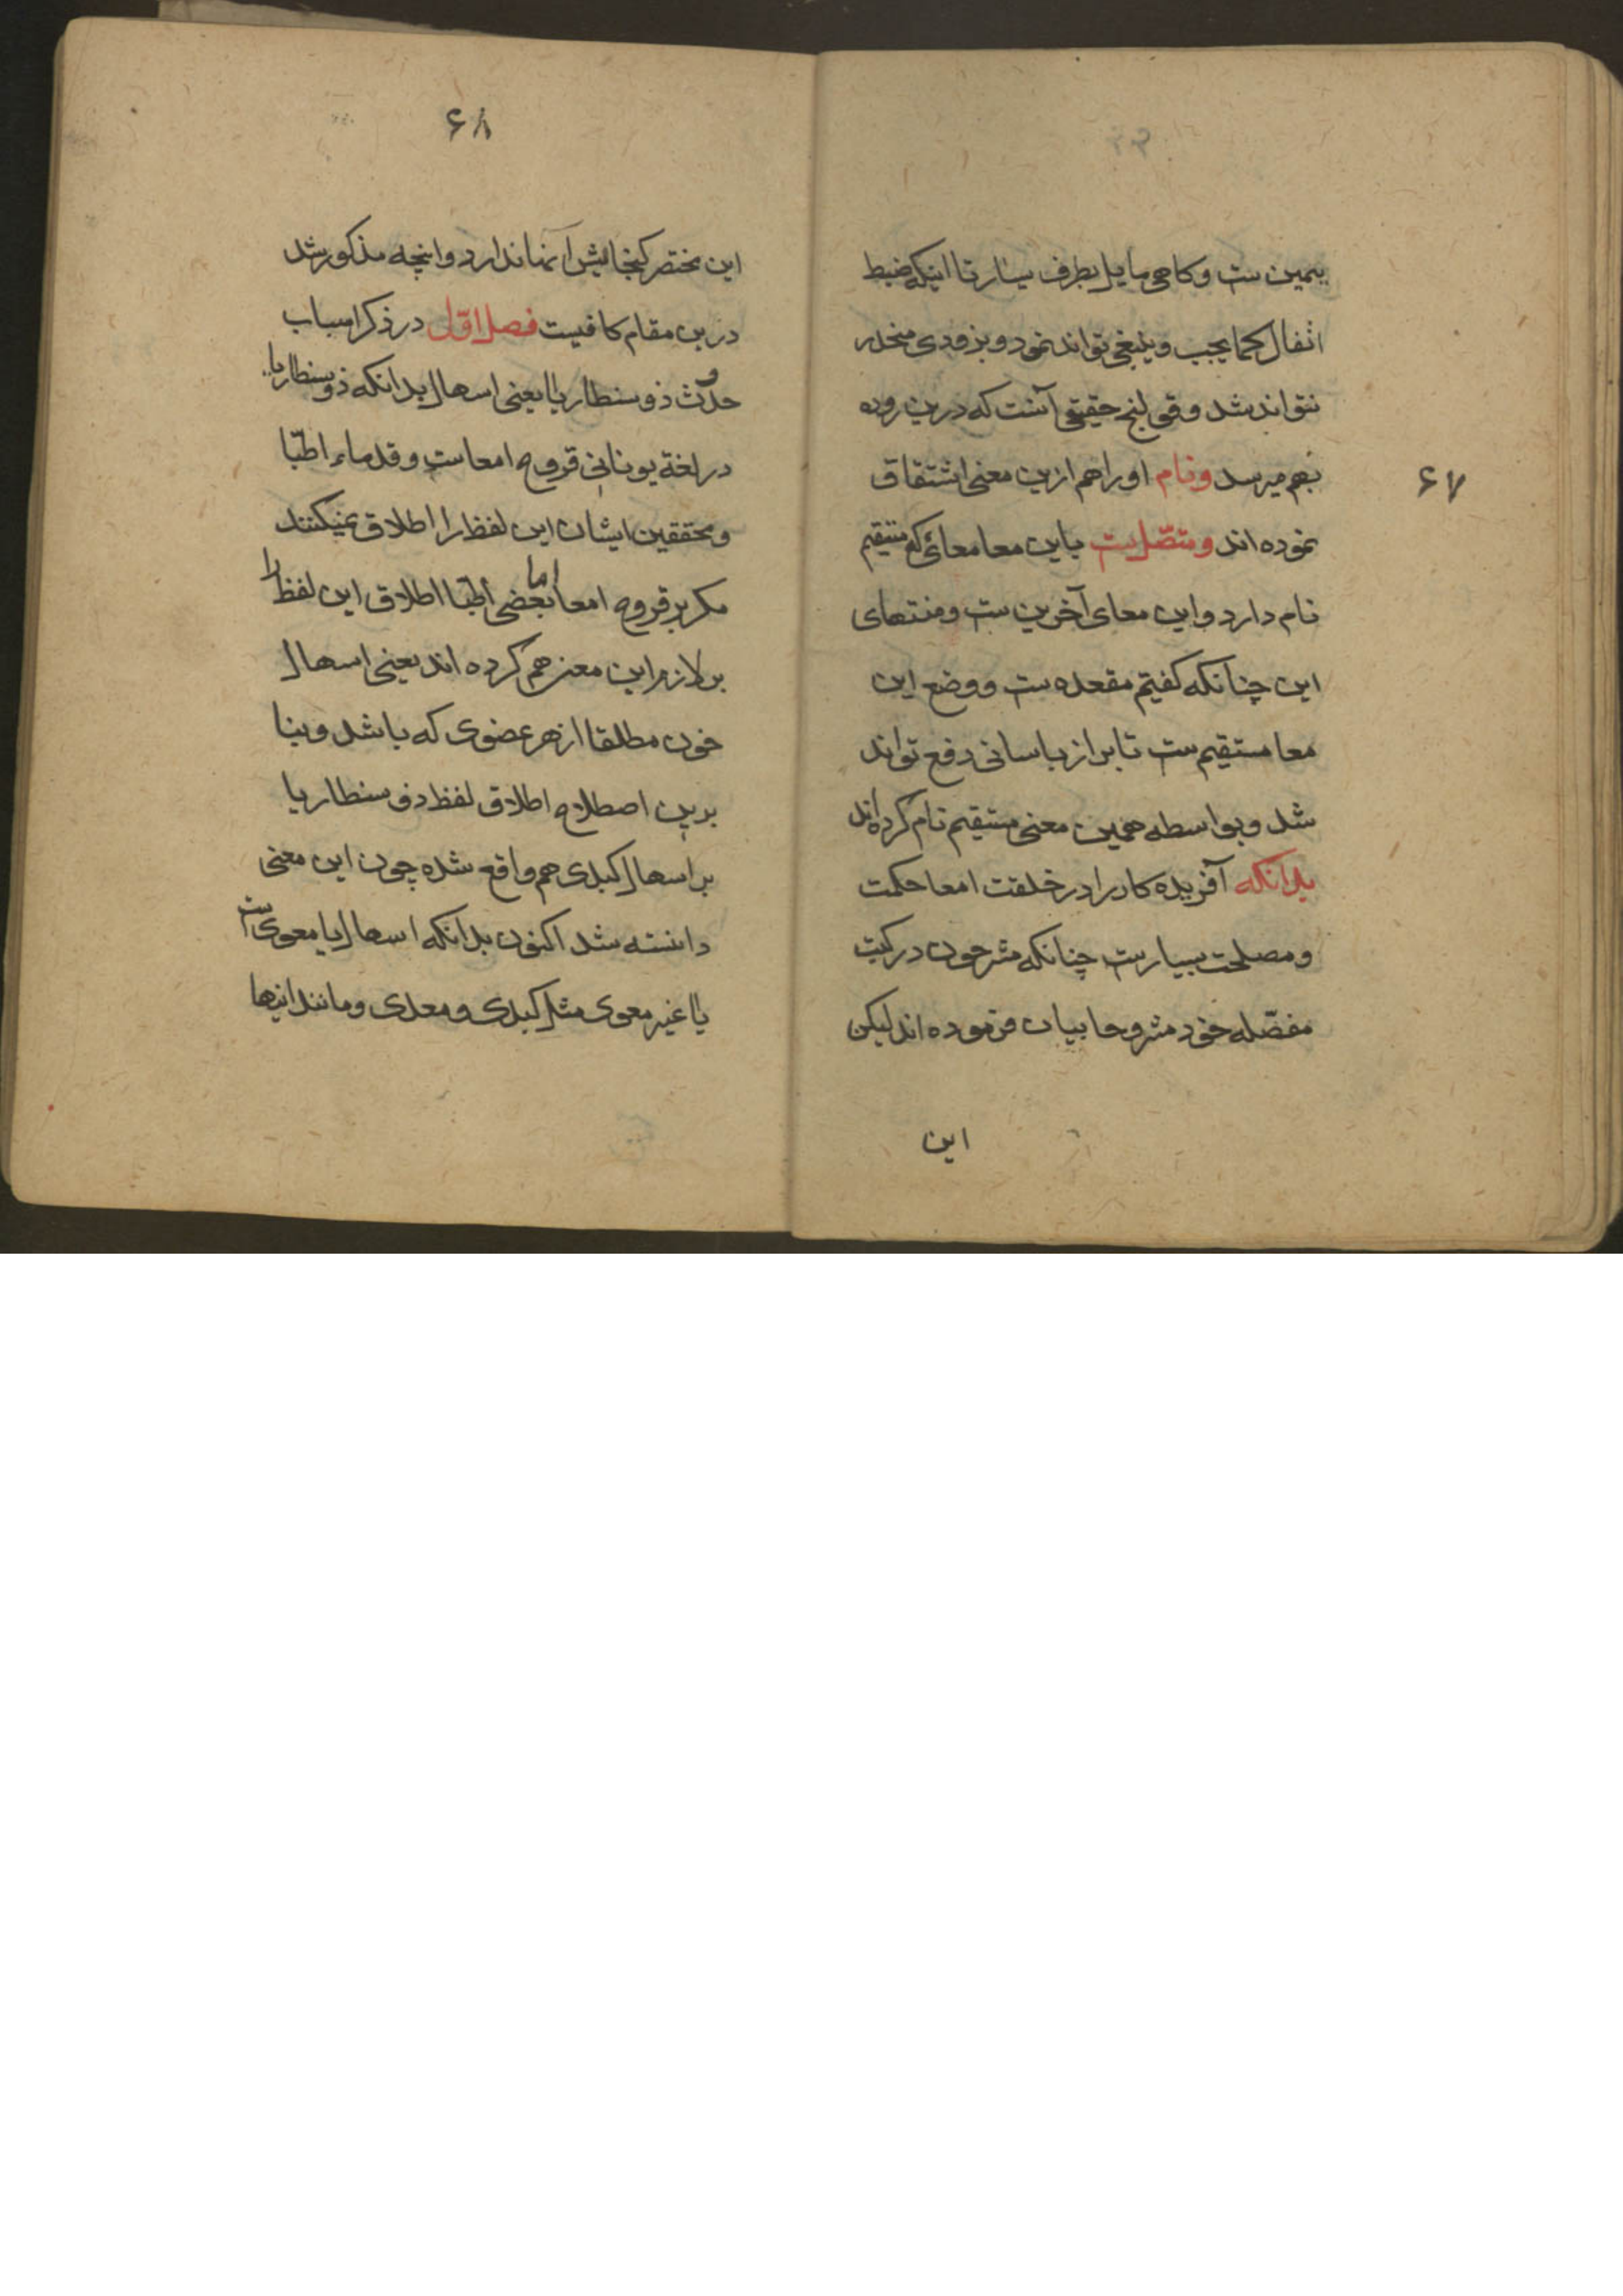 ۶۷
یمین ست و کاهی مایل بطرف یسار تا اینکه ضبط
اثفال کما یجب و ینبغی تواند نمود و بزودی منحدر
نتواند شد و قولنج حقیقی آنست که درین روده
بهم میرسد و نام او را هم ازین معنی اشتقاق
نموده اند و متصل ست باین معا معائی که مستقیم
نام دارد و این معای آخرین ست و منتهای
این چنانکه کفتیم مقعده ست و وضع این
معا مستقیم ست تا براز باسانی دفع تواند
شد و بواسطه همین معنی مستقیم نام کرده اند
بدانکه آفریده کار را در خلقت امعا حکمت
و مصلحت بسیار ست چنانکه مشرحون در کتب
مفصّله خود مشروحا بیان فرموده اند لیکن
این
۶۸
این مختصر کنجایش آنها ندارد و انچه مذکور شد
درین مقام کافیست فصل اوّل در ذکر اسباب
حدوث ذوسنطاریا یعنی اسهال بدانکه ذوسنطاریا
در لغة یونانی قروح امعاست و قدماء اطبّا
و محققین ایشان این لفظ را اطلاق نمیکنند
مکر بر قروح امعا اما بعضی اطبّا اطلاق این لفظ را
بر لازم این معنی هم کرده اند یعنی اسهال
خون مطلقا از هر عضوی که باشد و بنا
برین اصطلاح اطلاق لفظ ذوسنطاریا
بر اسهال کبدی هم واقع شده چون این معنی
دانسته شد اکنون بدانکه اسهال یا معوی ست
یا غیر معوی مثل کبدی و معدی و مانند اینها